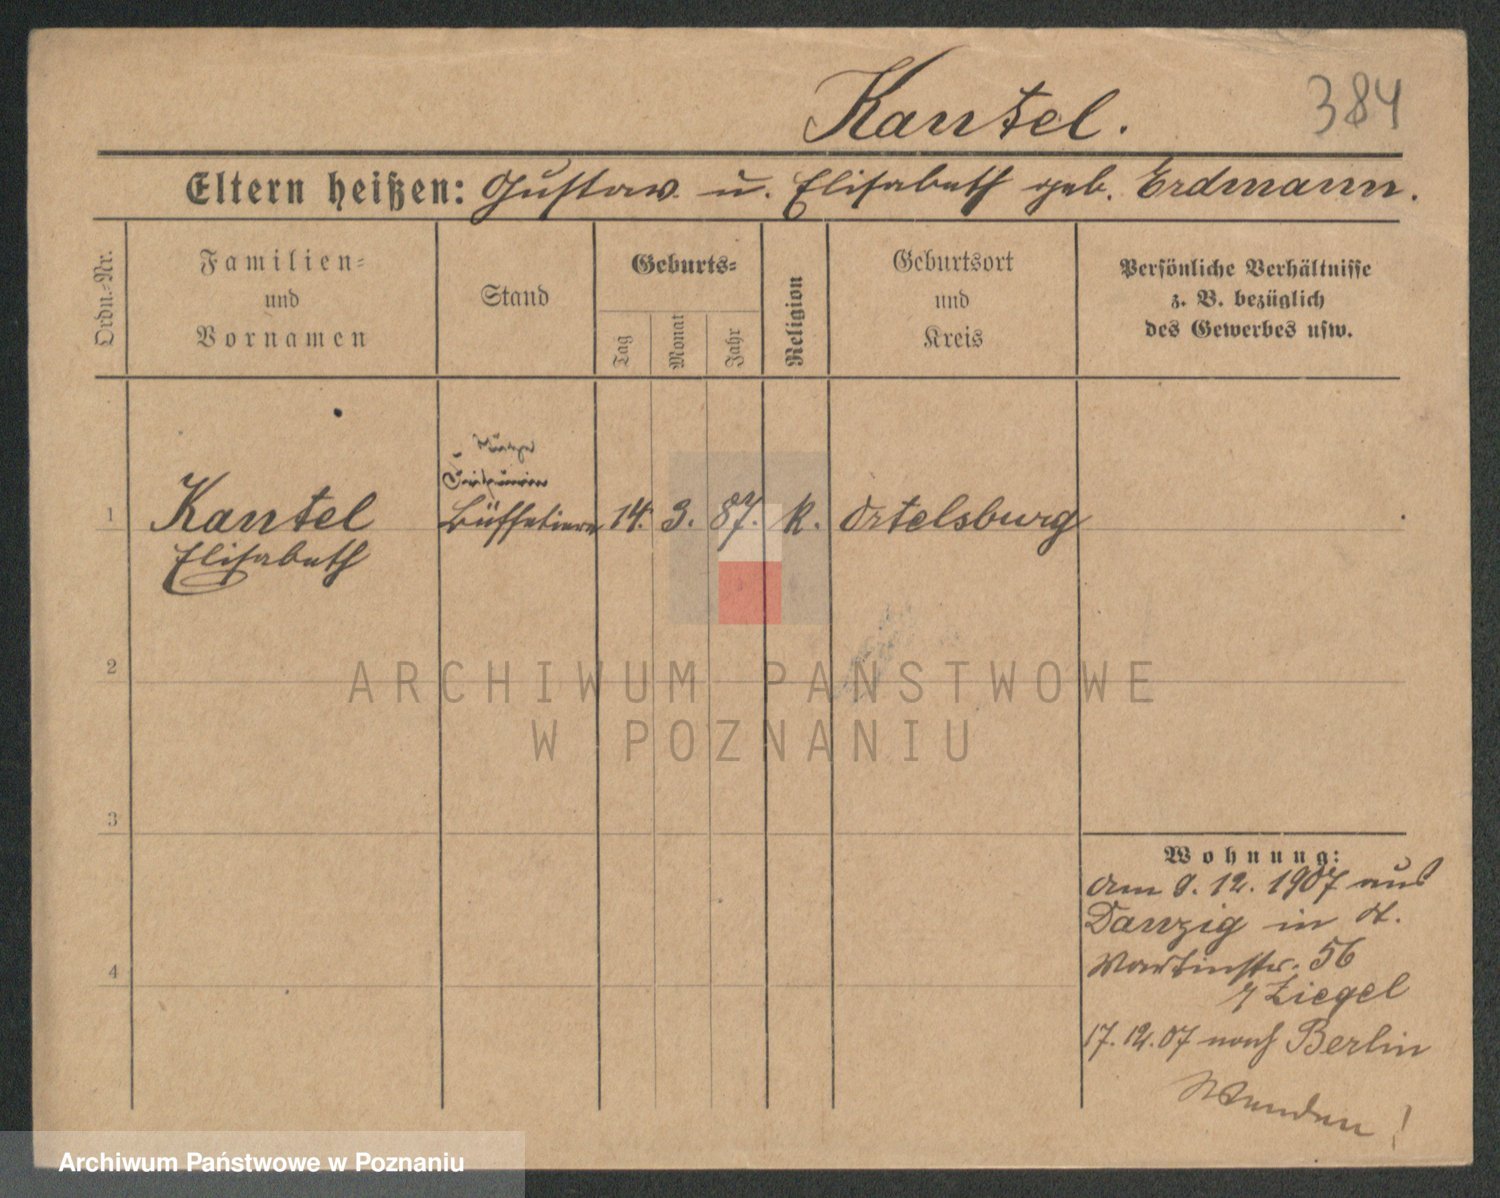 Kantel.
384
Eltern heißen: Gustav u. Elisabeth geb. Erdmann.
Ordn.-Nr.
Familien-
und
Vornamen
Stand
Geburts-
Tag
Monat
Jahr
Religion
Geburtsort
und
Kreis
Persönliche Verhältnisse
z. B. bezüglich
des Gewerbes usw.
1
Kantel
Elisabeth
Büffetiere
14. 3. 87. k. Ortelsburg
2
3
4
Wohnung:
am 9. 12. 1907 aus
Danzig in St.
Martinstr. 56
Ziegel
17.12.07 nach Berlin
Wenden!
ARCHIWUM PAŃSTWOWE
W POZNANIU
Archiwum Państwowe w Poznaniu